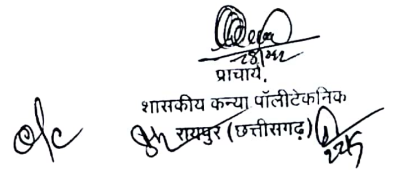 प्राचार्य,
शासकीय कन्या पॉलीटेकनिक
रायपुर (छत्तीसगढ़)
o/c